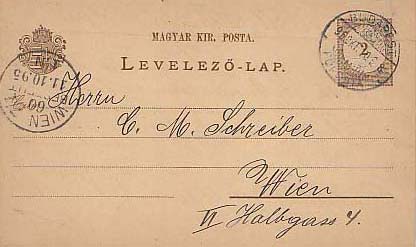 MAGYAR KIR. POSTA.
LEVELEZŐ-LAP.
BUDAPEST
WIEN
11.10.95
Herrn
C. M. Schreiber
Wien
VI Halbgass 4.